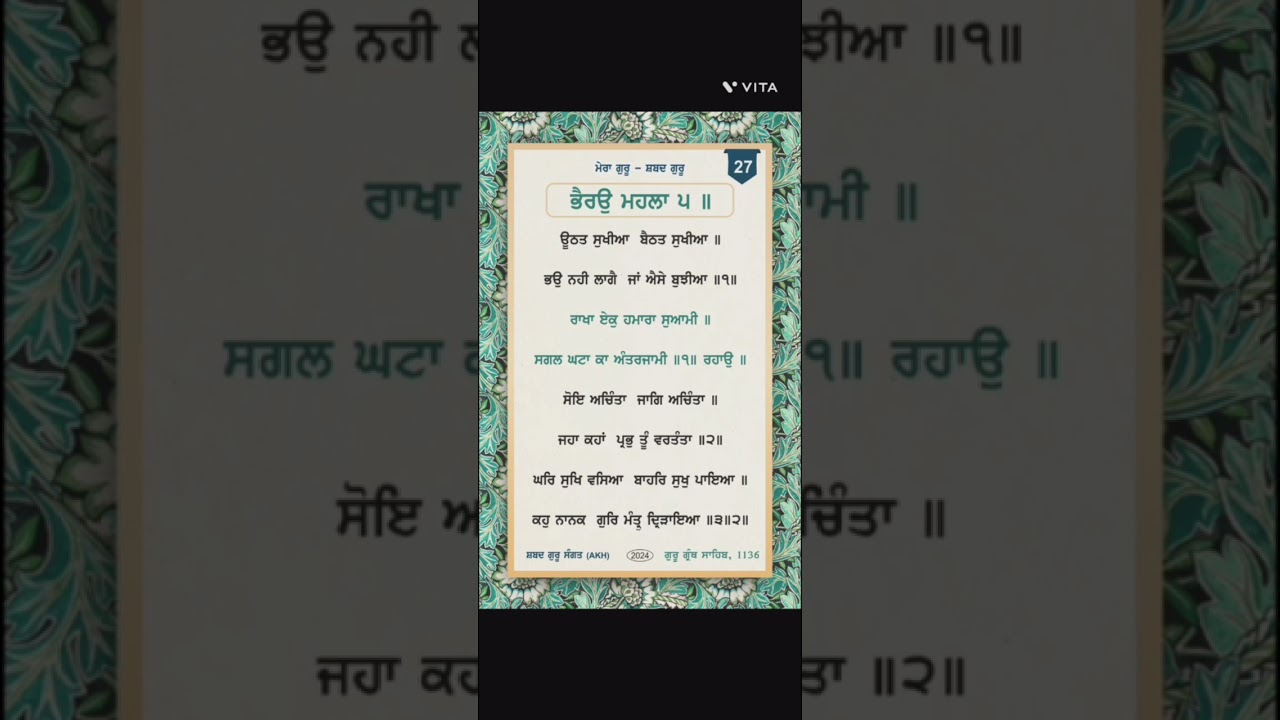 VITA
ਮੇਰਾ ਗੁਰੂ - ਸ਼ਬਦ ਗੁਰੂ
27
ਭੈਰਉ ਮਹਲਾ ੫ ॥
ਊਠਤ ਸੁਖੀਆ ਬੈਠਤ ਸੁਖੀਆ ॥
ਭਉ ਨਹੀ ਲਾਗੈ ਜਾਂ ਐਸੇ ਬੁਝੀਆ ॥੧॥
ਰਾਖਾ ਏਕੁ ਹਮਾਰਾ ਸੁਆਮੀ ॥
ਸਗਲ ਘਟਾ ਕਾ ਅੰਤਰਜਾਮੀ ॥੧॥ ਰਹਾਉ ॥
ਸੋਇ ਅਚਿੰਤਾ ਜਾਗਿ ਅਚਿੰਤਾ ॥
ਜਹਾ ਕਹਾਂ ਪ੍ਰਭੁ ਤੂੰ ਵਰਤੰਤਾ ॥੨॥
ਘਰਿ ਸੁਖਿ ਵਸਿਆ ਬਾਹਰਿ ਸੁਖੁ ਪਾਇਆ ॥
ਕਹੁ ਨਾਨਕ ਗੁਰਿ ਮੰਤ੍ਰੁ ਦ੍ਰਿੜਾਇਆ ॥੩॥੨॥
ਸ਼ਬਦ ਗੁਰੂ ਸੰਗਤ (AKH) 2024 ਗੁਰੂ ਗ੍ਰੰਥ ਸਾਹਿਬ, 1136